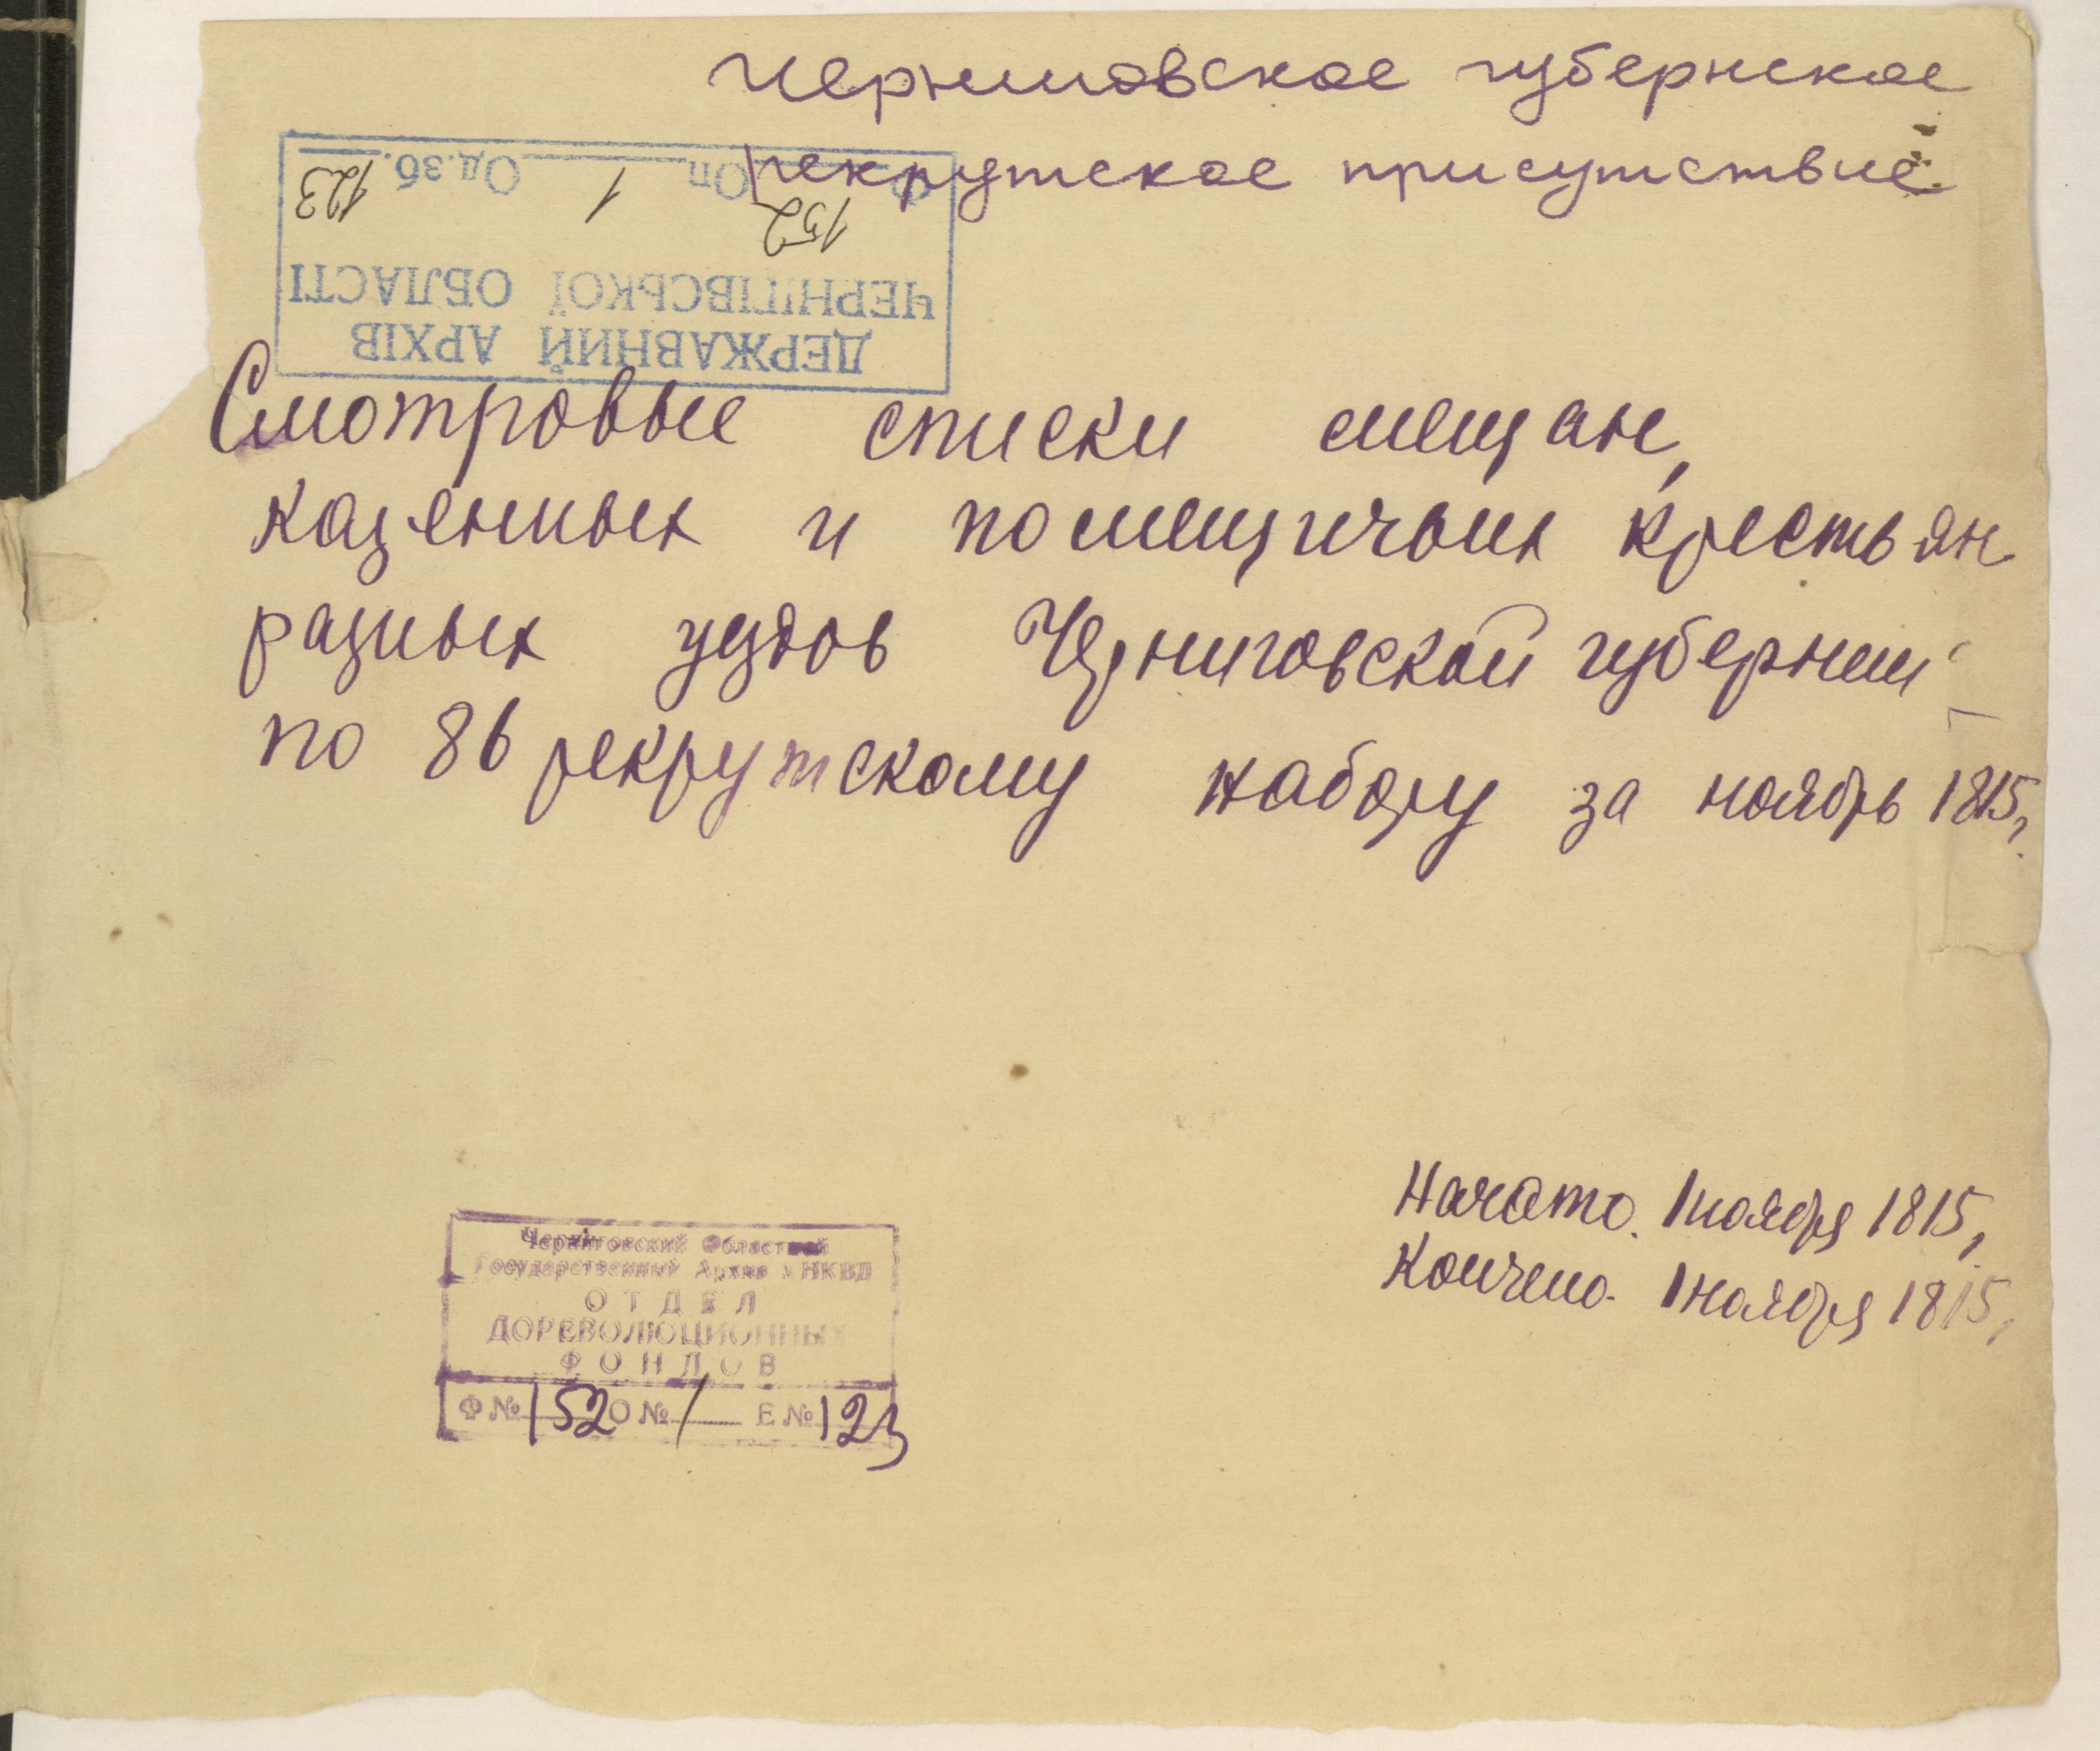 Черниговское губернское
рекрутское присутствие
Ф. 152 Оп. 1 Од.зб. 123
ЧЕРНІГІВСЬКОЇ ОБЛАСТІ
ДЕРЖАВНИЙ АРХІВ
Смотровые списки мещан,
казенных и помещичьих крестьян
разных уездов Черниговской губернии
по 86 рекрутскому набору за ноябрь 1815,
Начато. 1 ноября 1815,
Кончено. 1 ноября 1815,
Черниговский Областной
Государственный Архив НКВД
ОТДЕЛ
ДОРЕВОЛЮЦИОННЫХ
ФОНДОВ
Ф № 152 О № 1 Е № 123